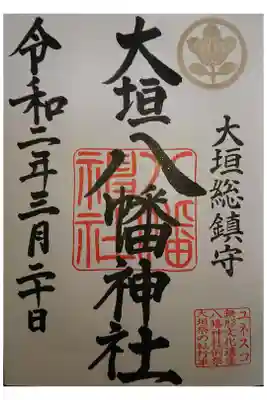 大垣総鎮守
ユネスコ
無形文化遺産
八幡神社例祭
大垣祭の軕行事
大垣八幡神社
八幡
神社
令和二年三月二十日